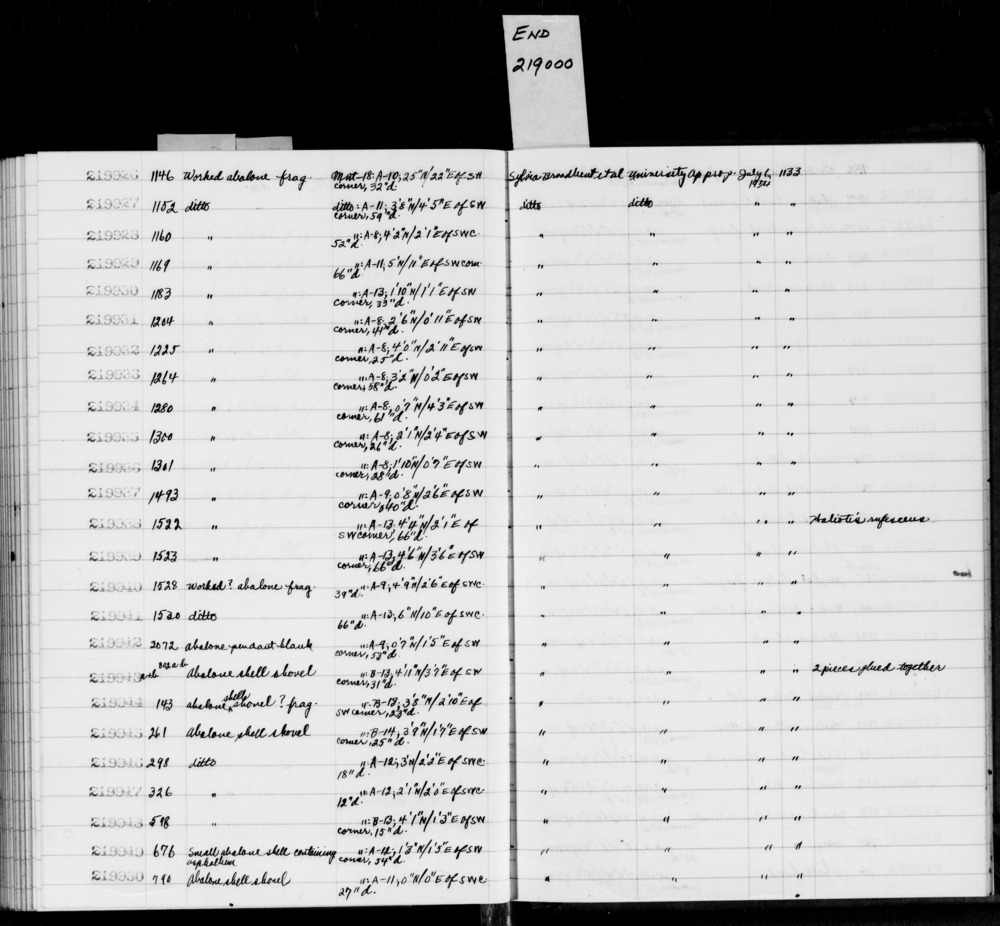 END
219000
219926 1146 Worked abalone frag. Mnt-18: A-10; 25"N/22"E of SW
corner, 32"d. Sylvia Broadbent et al University Approp. July 6, 1133
1952
219927 1152 ditto ditto: A-11; 3'8"N/4'5"E of SW ditto ditto " "
corner, 59"d.
219928 1160 " ": A-8; 4'2"N/2'1"E of SWC. " " " "
52"d.
219929 1169 " ": A-11; 5'N/11"E of SW corn " " " "
66"d
219930 1183 " ": A-13; 1'10"N/1'1"E of SW " " " "
corner, 33"d.
219931 1204 " ": A-8; 2'6"N/0'11"E of SW " " " "
corner, 44"d.
219932 1225 " ": A-8; 4'0"N/2'11"E of SW " " " "
corner, 25"d.
219933 1264 " ": A-8; 3'2"N/0'2"E of SW " " " "
corner, 58"d.
219934 1280 " ": A-8; 0'7"N/4'3"E of SW " " " "
corner, 61"d.
219935 1300 " ": A-8; 2'1"N/2'4"E of SW " " " "
corner, 26"d.
219936 1301 " ": A-8; 1'10"N/0'7"E of SW " " " "
corner, 28"d.
219937 1493 " ": A-9; 0'8"N/2'6"E of SW " " " "
corner, 40"d.
219938 1522 " ": A-13; 4'4"N/2'1"E of " " " " Haliotis rufescens
SW corner, 66"d.
219939 1523 " ": A-13; 4'6"N/3'6"E of SW " " " "
corner, 66"d.
219940 1528 Worked? abalone frag. ": A-9; 4'9"N/2'6"E of SWC. " " " "
39"d.
219941 1530 ditto ": A-13; 6"N/10"E of SWC. " " " "
66"d.
219942 2072 abalone pendant blank ": A-9; 0'7"N/1'5"E of SW " " " "
corner, 53"d.
219943 a+b 802 a b Abalone shell shovel ": B-13; 4'11"N/3'7"E of SW " " " " 2 pieces glued together
corner, 31"d.
219944 143 abalone shell shovel? frag. ": B-13; 3'8"N/2'10"E of " " " "
SW corner, 23"d.
219945 261 Abalone shell shovel ": B-14; 3'9"N/1'7"E of SW " " " "
corner, 25"d.
219946 298 ditto ": A-12; 3'N/2'2"E of SWC " " " "
18"d.
219947 326 " ": A-12; 2'1"N/2'0"E of SWC " " " "
12"d.
219948 598 " ": B-13; 4'1"N/1'3"E of SW " " " "
corner, 15"d.
219949 676 Small abalone shell containing ": A-12; 1'3"N/1'3"E of SW " " " "
asphaltum corner, 34"d.
219950 790 Abalone shell shovel ": A-11; 0"N/0"E of SWC " " " "
27"d.